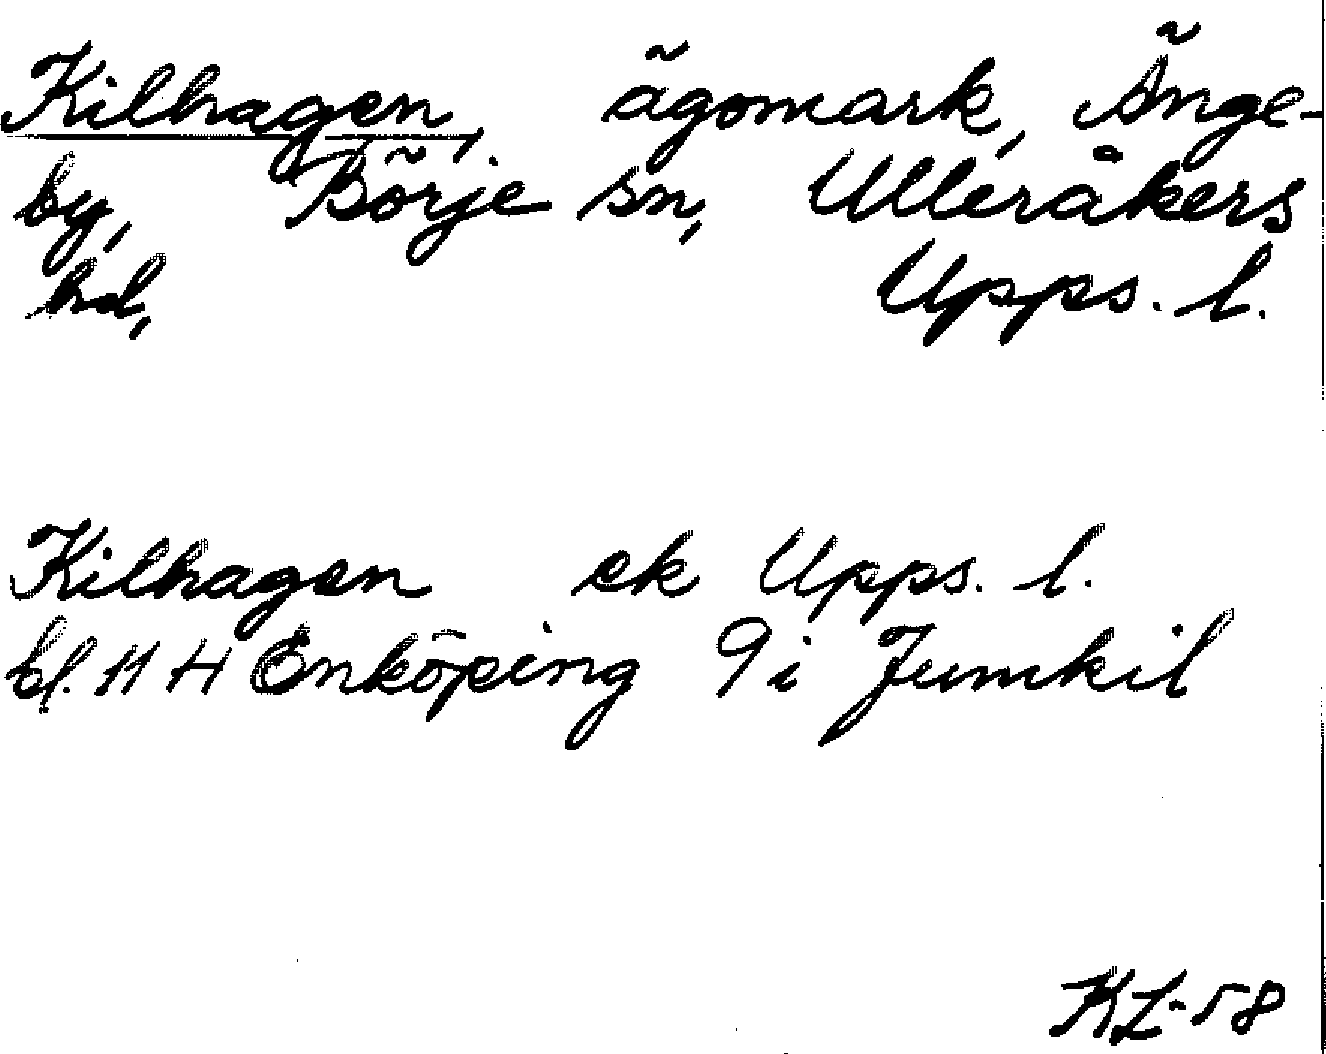 Kilhagen, ägomark, Änge-
by, Börje sn, Ulleråkers
hd, Upps. l.
Kilhagen ek Upps. l.
bl. 11 H Enköping 9 i Jumkil
KL-58